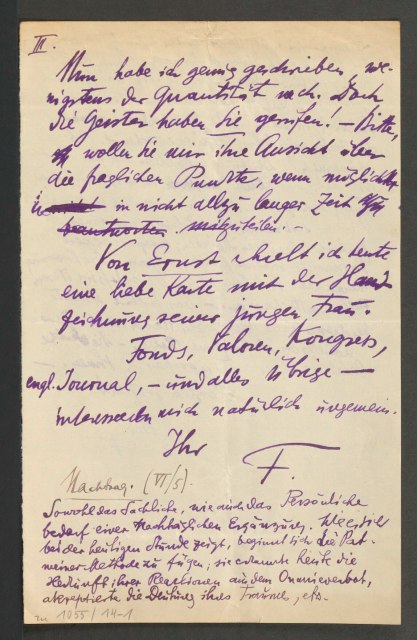 III.
Nun habe ich genug geschrieben, we-
nigstens der Quantität nach. Doch
die Geister haben Sie gerufen! – Bitte,
wollen Sie mir ihre Ansicht über
die fraglichen Punkte, wenn möglich
in nicht allzu langer Zeit
beantworten mitzuteilen. –
Von Ernst erhielt ich heute
eine liebe Karte mit der Hand-
zeichnung seiner jungen Frau.
Fonds, Valoren, Kongress,
engl. Journal, – und alles Übrige –
interessieren mich natürlich ungemein.
Ihr
F.
Nachtrag. (VI/5).
Sowohl das Sachliche, wie auch das Persönliche
bedarf einer nachträglichen Ergänzung. Wie sich
bei der heutigen Stunde zeigt, beginnt sich die Pat.
meiner Methode zu fügen; sie erkannte heute die
Herkunft ihrer Reaktionen aus dem Onanieverbot,
akzeptierte die Deutung ihres Traumes, etc.
zu 1055/14-1